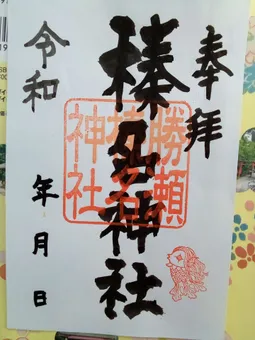 奉拝
榛名神社
勝瀬
榛名
神社
令和 年 月 日